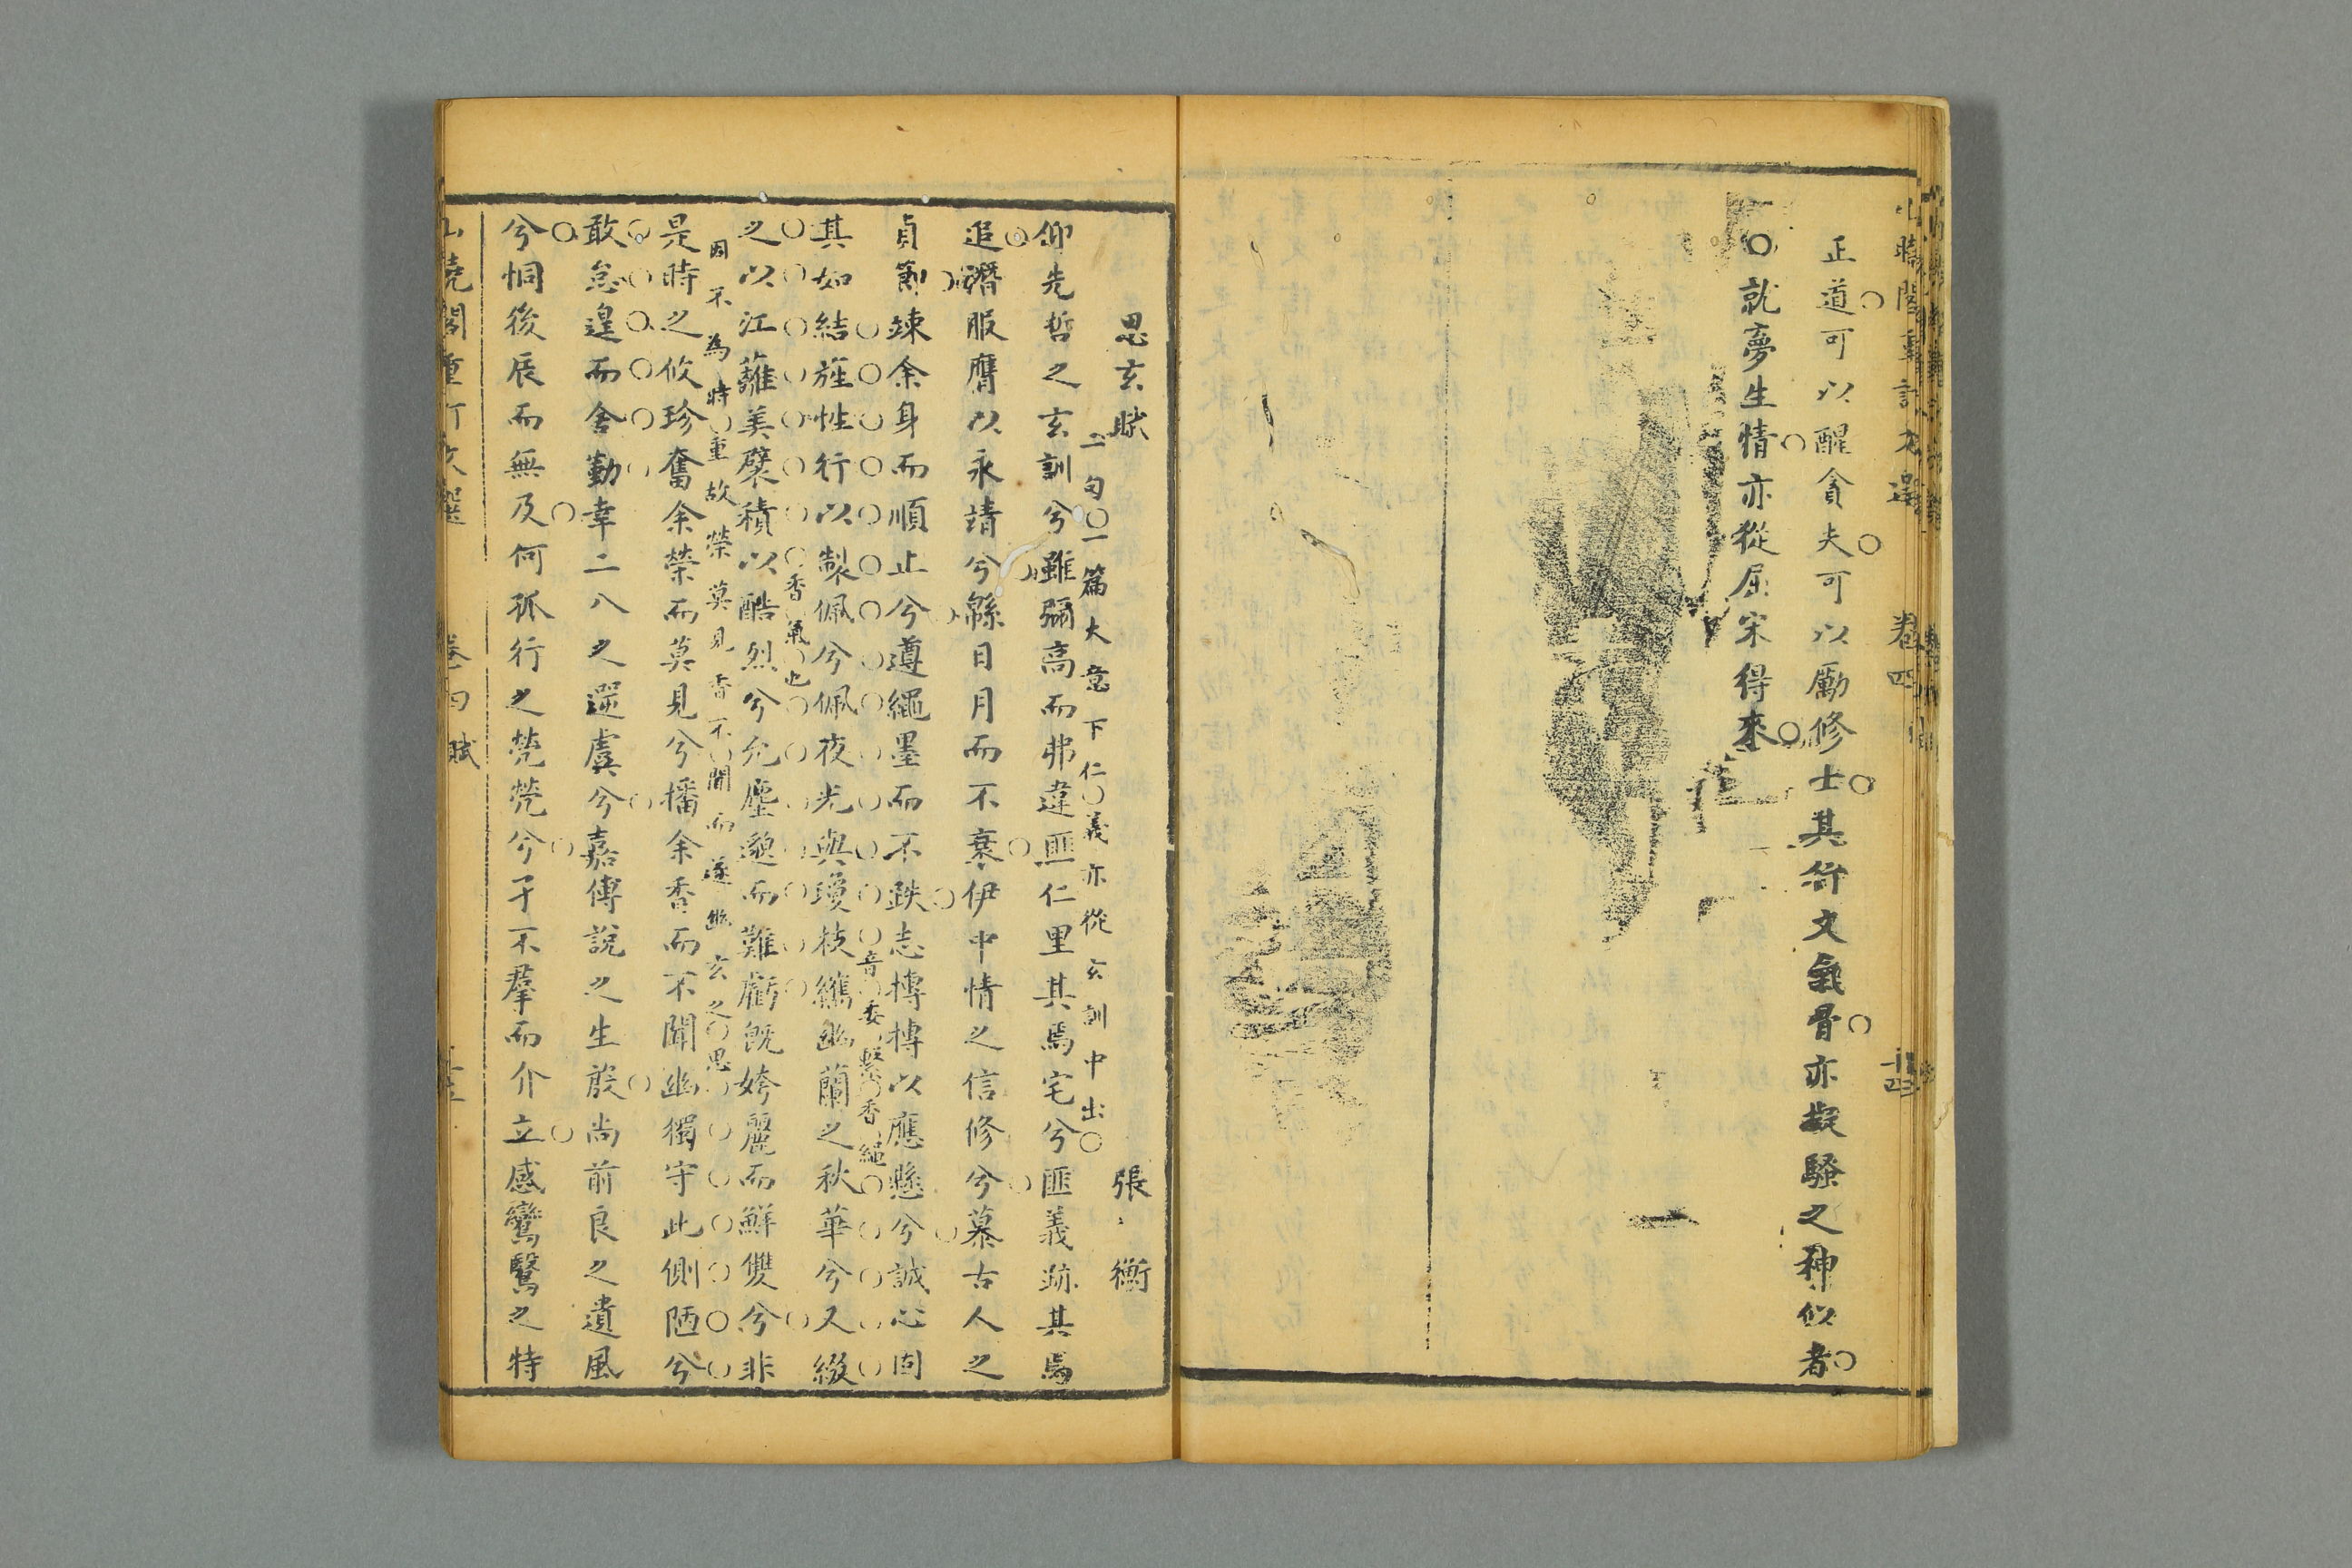 正道可以醒貪夫可以勵修士其行文氣骨亦凝騷之神似者
就夢生情亦從屈宋得來
卷四
十四
思玄賦
張衡
二句一篇大意下仁義亦從玄訓中出
仰先哲之玄訓兮雖彌高而弗違匪仁里其焉宅兮匪義跡其焉
追潛服膺以永靖兮緜日月而不衰伊中情之信修兮慕古人之
貞節竦余身而順止兮遵繩墨而不跌志摶摶以應懸兮誠心固
音委繫香纏
其如結旌性行以製佩兮佩夜光與瓊枝纗幽蘭之秋華兮又綴
香氣也
之以江蘺美襞積以酷烈兮允塵邈而難虧旣姱麗而鮮雙兮非
因不為時重故榮莫見香不聞而遂幽玄之思
是時之攸珍奮余榮而莫見兮播余香而不聞幽獨守此側陋兮
敢怠遑而舍勤幸二八之遻虞兮嘉傅說之生殷尚前良之遺風
兮恫後辰而無及何孤行之煢煢兮孑不羣而介立感鸞鷖之特
山曉閣重訂文選 卷四 賦